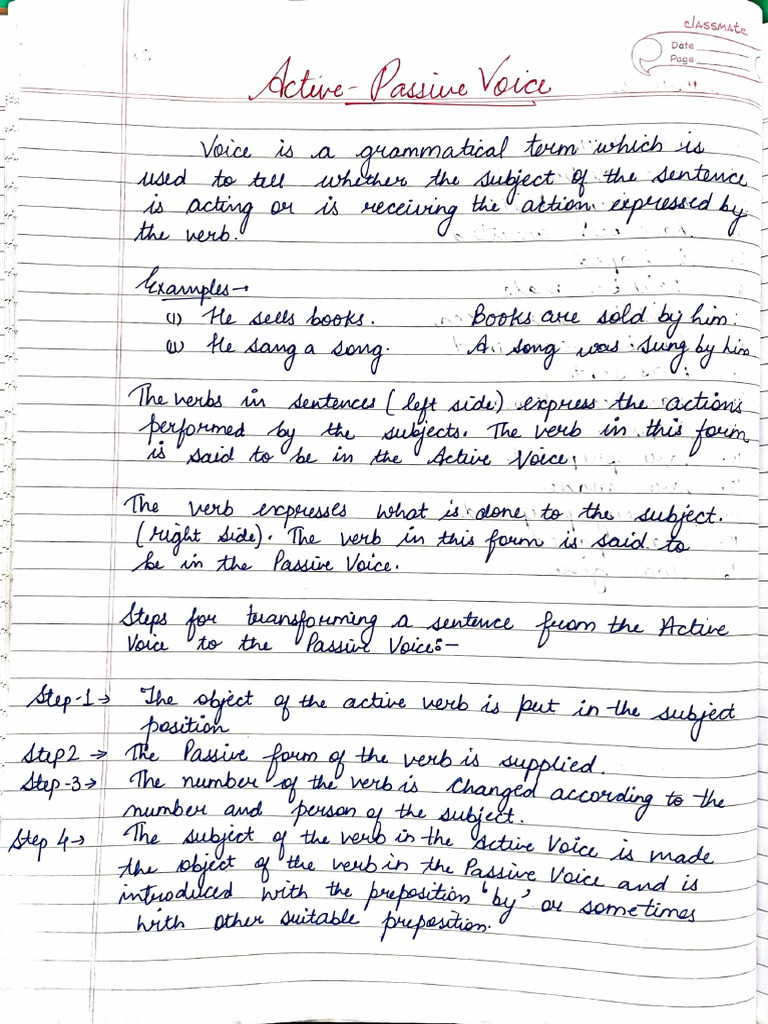 classmate
Date
Page
Active-Passive Voice
Voice is a grammatical term which is
used to tell whether the subject of the sentence
is acting or is receiving the action expressed by
the verb.
Examples→
(i) He sells books. Books are sold by him.
(ii) He sang a song. A song was sung by him
The verbs in sentences (left side) express the actions
performed by the subjects. The verb in this form
is said to be in the Active Voice.
The verb expresses what is done to the subject.
(right side). The verb in this form is said to
be in the Passive Voice.
Steps for transforming a sentence from the Active
Voice to the Passive Voice:-
Step-1→ The object of the active verb is put in the subject
position
Step2 → The Passive form of the verb is supplied.
Step-3→ The number of the verb is Changed according to the
number and person of the subject.
Step 4→ The subject of the verb in the Active Voice is made
the object of the verb in the Passive Voice and is
introduced with the preposition 'by' or sometimes
with other suitable preposition.